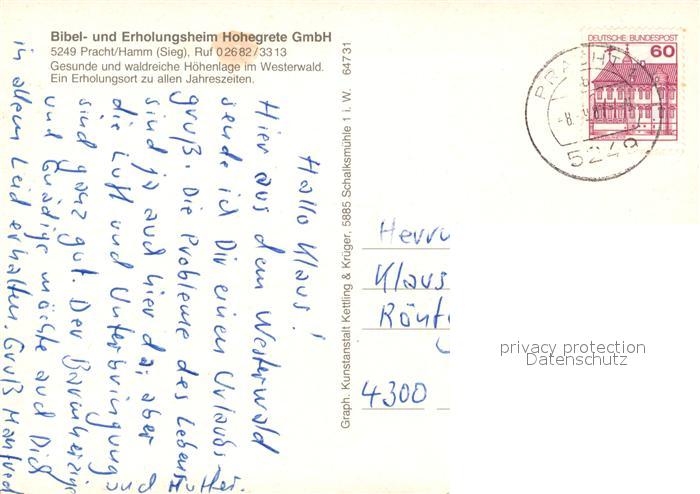 Bibel- und Erholungsheim Hohegrete GmbH
5249 Pracht/Hamm (Sieg), Ruf 02682/3313
Gesunde und waldreiche Höhenlage im Westerwald.
Ein Erholungsort zu allen Jahreszeiten.
Hallo Klaus!
Hier aus dem Westerwald
sende ich Dir einen Urlaubs
gruß. Die Probleme des Lebens
sind ja auch hier da, aber
die Luft und Unterbringung und Mutter.
sind ganz gut. Der Barmherzige
und Gnädige möchte auch Dich
in allem Leid erhalten. Gruß Manfred
Graph. Kunstanstalt Kettling & Krüger, 5885 Schalksmühle 1 i. W. 64731
DEUTSCHE BUNDESPOST
60
PRACHT
5249
Herrn
Klaus
Rönt
4300
privacy protection
Datenschutz